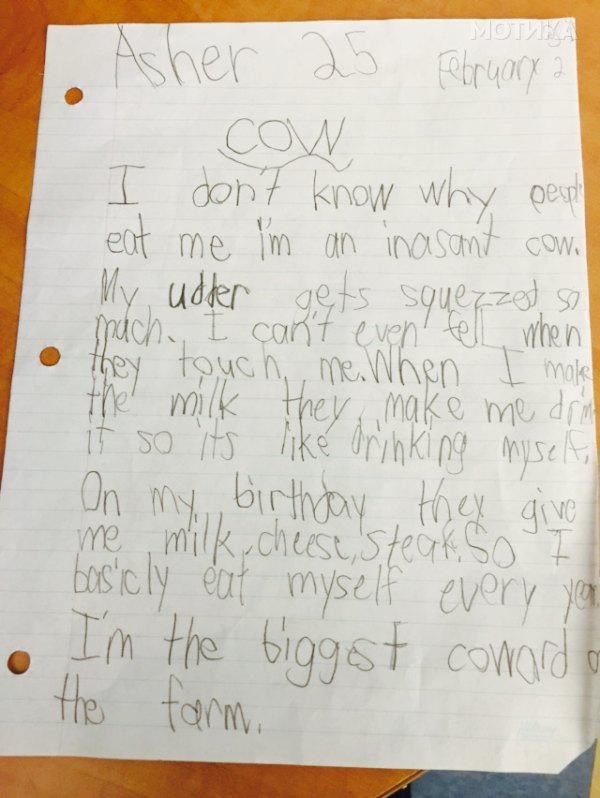 МОТИКА
Asher 25 February 2
COW
I don't know why peopl
eat me i'm an inasant cow.
My udder gets squezzed so
much. I can't even tell when
they touch me. When I make
the milk they make me drin
it so its like drinking myself.
On my birthday they give
me milk, cheese, steak. So I
basicly eat myself every year
I'm the biggest coward o
the farm.